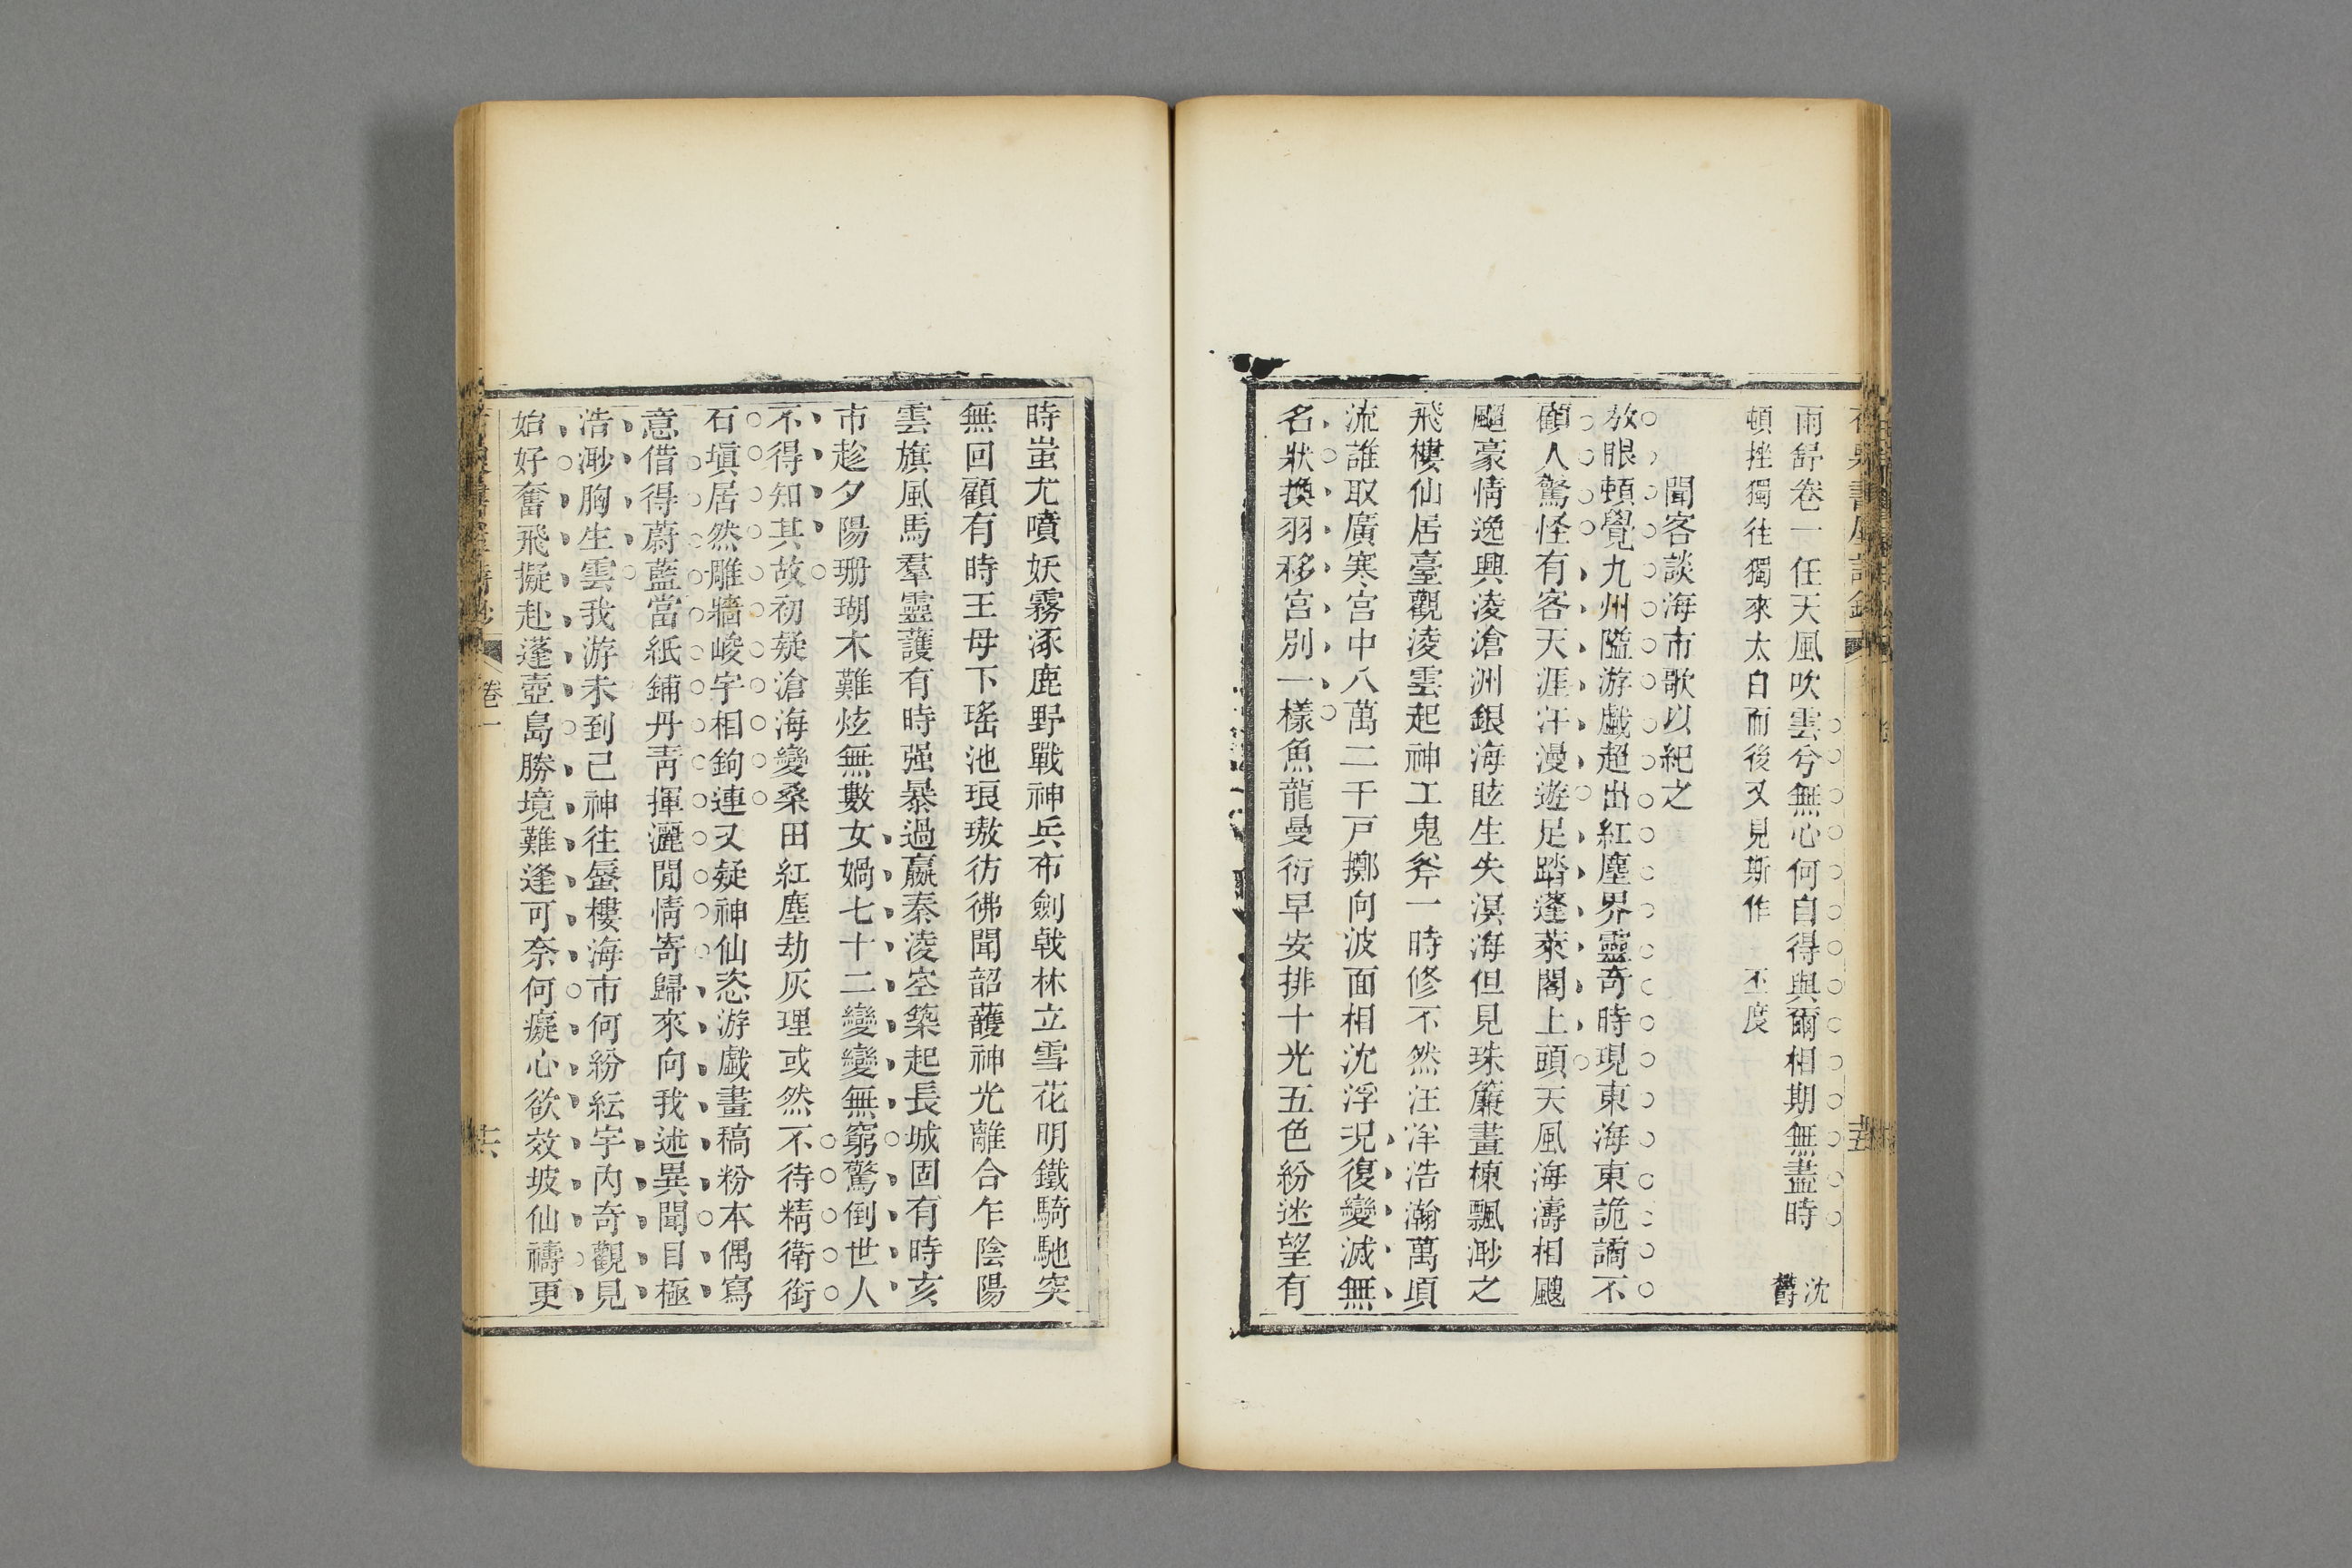 雨舒卷一任天風吹雲兮無心何自得與爾相期無盡時 沈鬱
頓挫獨往獨來太白而後又見斯作 丕度
聞客談海市歌以紀之
放眼頓覺九州隘游戲超出紅塵界靈奇時現東海東詭譎不
顧人驚怪有客天涯汗漫遊足踏蓬萊閣上頭天風海濤相颼
颼豪情逸興淩滄洲銀海眩生失溟海但見珠簾畫棟飄渺之
飛樓仙居臺觀淩雲起神工鬼斧一時修不然汪洋浩瀚萬頃
流誰取廣寒宮中八萬二千戸擲向波面相沈浮況復變滅無
名狀換羽移宮別一樣魚龍曼衍早安排十光五色紛迷望有
時蚩尤噴妖霧涿鹿野戰神兵布劍戟林立雪花明鐵騎馳突
無回顧有時王母下瑤池琅璈彷彿聞韶頀神光離合乍陰陽
雲旗風馬羣靈護有時强暴過嬴秦淩空築起長城固有時亥
市趁夕陽珊瑚木難炫無數女媧七十二變變無窮驚倒世人
不得知其故初疑滄海變桑田紅塵劫灰理或然不待精衛銜
石塡居然雕牆峻宇相鉤連又疑神仙恣游戲畫稿粉本偶寫
意借得蔚藍當紙鋪丹靑揮灑閒情寄歸來向我述異聞目極
浩渺胸生雲我游未到己神往蜃樓海市何紛紜宇內奇觀見
始好奮飛擬赴蓬壺島勝境難逢可奈何癡心欲效坡仙禱更
卷一